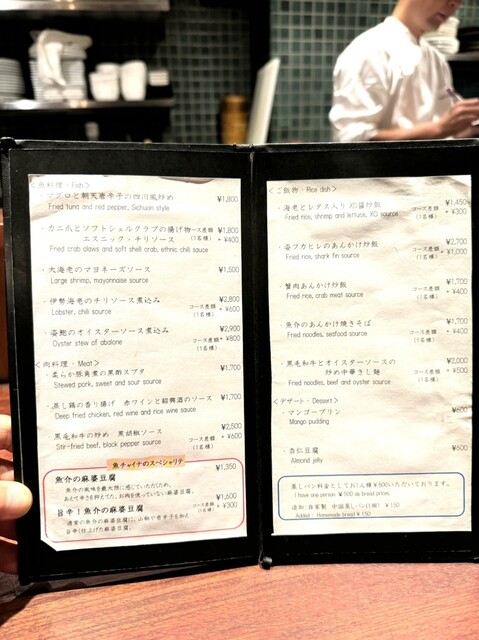 <魚料理・Fish>
・マグロと朝天唐辛子の四川風炒め ¥1,800
Fried tuna and red pepper, Sichuan style
・カニ爪とソフトシェルクラブの揚げ物 コース差額 ¥1,800
エスニック・チリソース (1名様) + ¥400
Fried crab claws and soft shell crab, ethnic chili sauce
・大海老のマヨネーズソース ¥1,500
Large shrimp, mayonnaise source
・伊勢海老のチリソース煮込み コース差額 ¥2,800
Lobster, chili source (1名様) + ¥600
・姿鮑のオイスターソース煮込み コース差額 ¥2,900
Oyster stew of abalone (1名様) + ¥800
<肉料理・Meat>
・柔らか豚角煮の黒酢スブタ ¥1,700
Stewed pork, sweet and sour source
・蒸し鶏の香り揚げ 赤ワインと紹興酒のソース ¥1,700
Deep fried chicken, red wine and rice wine sauce
・黒毛和牛の炒め 黒胡椒ソース コース差額 ¥2,500
Stir-fried beef, black pepper source (1名様) + ¥600
魚チャイナのスペシャリテ
魚介の麻婆豆腐 ¥1,350
魚介の風味を最大限に感じていただくため、
あえて辛さを抑えてた、お肉を使っていない麻婆豆腐。
旨辛!魚介の麻婆豆腐 コース差額 ¥1,600
(1名様) + ¥300
通常の魚介の麻婆豆腐に、山椒や唐辛子を加え
旨辛く仕上げた麻婆豆腐。
<ご飯物・Rice dish>
・海老とレタス入り XO醤炒飯 コース差額 ¥1,450
Fried rice, shrimp and lettuce, XO source (1名様) + ¥300
・姿フカヒレのあんかけ炒飯 コース差額 ¥2,700
Fried rice, shark fin source (1名様) + ¥1,000
・蟹肉あんかけ炒飯 コース差額 ¥1,700
Fried rice, crab meat source (1名様) + ¥400
・魚介のあんかけ焼きそば コース差額 ¥1,700
Fried noodles, seafood source (1名様) + ¥400
・黒毛和牛とオイスターソースの コース差額 ¥2,000
炒め中華きし麺 (1名様) + ¥500
Fried noodles, beef and oyster source
<デザート・Dessert>
・マンゴープリン ¥600
Mango pudding
・杏仁豆腐 ¥600
Almond jelly
蒸しパン料金としてお1人様¥500いただいております。
I have one person ¥500 as bread prices.
追加:自家製 中国蒸しパン(1個) ¥150
Added: Homemade bread ¥150